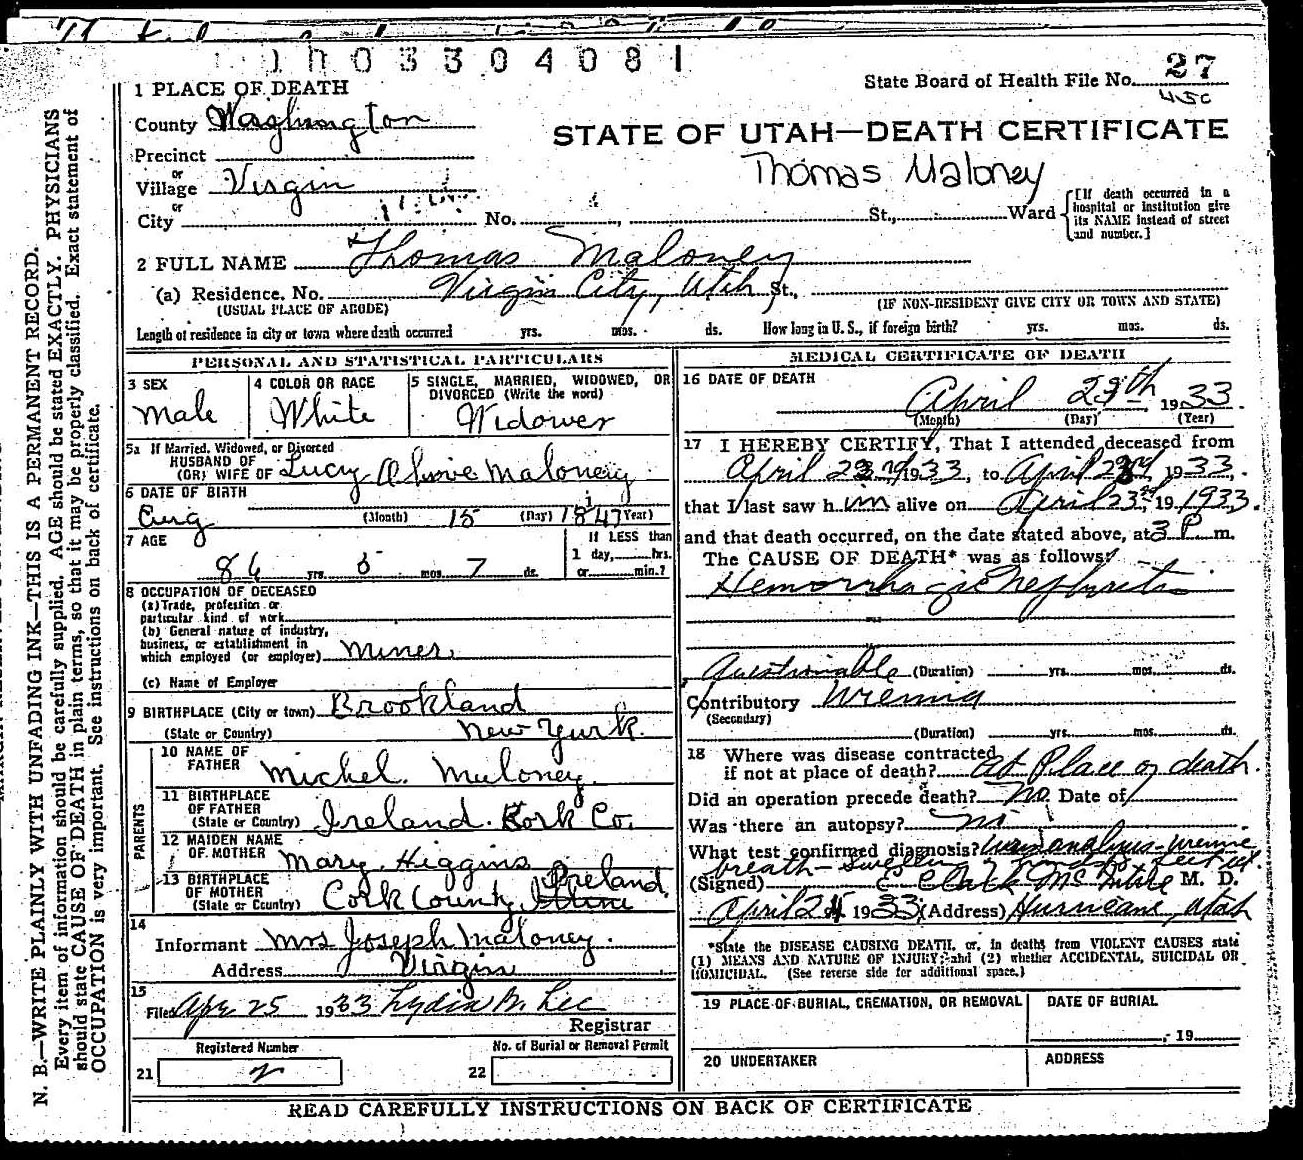 1003304081
State Board of Health File No. 27
450
1 PLACE OF DEATH
County Washington
STATE OF UTAH—DEATH CERTIFICATE
Precinct
or
Village Virgin
Thomas Maloney
or
City No. , St., Ward
[If death occurred in a hospital or institution give its NAME instead of street and number.]
2 FULL NAME Thomas Maloney
(a) Residence, No. Virgin City, Utah St.,
(USUAL PLACE OF ABODE) (IF NON-RESIDENT GIVE CITY OR TOWN AND STATE)
Length of residence in city or town where death occurred yrs. mos. ds. How long in U. S., if foreign birth? yrs. mos. ds.
PERSONAL AND STATISTICAL PARTICULARS
3 SEX
Male
4 COLOR OR RACE
White
5 SINGLE, MARRIED, WIDOWED, OR
DIVORCED (Write the word)
Widower
5a If Married, Widowed, or Divorced
HUSBAND OF
(OR) WIFE OF Lucy Olive Maloney
6 DATE OF BIRTH
Aug (Month) 15 (Day) 1847 Year)
7 AGE
86 yrs. 8 mos. 7 ds.
If LESS than
1 day, hrs.
or min.?
8 OCCUPATION OF DECEASED
(a) Trade, profession or
particular kind of work
(b) General nature of industry,
business, or establishment in
which employed (or employer) Miner.
(c) Name of Employer
9 BIRTHPLACE (City or town) Brookland
(State or Country) New York.
PARENTS
10 NAME OF
FATHER Michel. Maloney.
11 BIRTHPLACE
OF FATHER
(State or Country) Ireland. Kork Co.
12 MAIDEN NAME
OF MOTHER Mary Higgins
13 BIRTHPLACE
OF MOTHER
(State or Country) Cork County Ireland
14
Informant Mrs Joseph Maloney.
Address Virgin
15
Filed Apr 25 1933 Lydia M. Lee
Registrar
Registered Number
21 2
No. of Burial or Removal Permit
22
MEDICAL CERTIFICATE OF DEATH
16 DATE OF DEATH
April 23th 1933
(Month) (Day) (Year)
17 I HEREBY CERTIFY, That I attended deceased from
April 23rd 1933, to April 23rd 1933.
that I last saw him alive on April 23rd, 19.1933.
and that death occurred, on the date stated above, at 3 P. m.
The CAUSE OF DEATH* was as follows:
Hemorrhagic Nephritis
Questionable (Duration) yrs. mos. ds.
Contributory Uremia
(Secondary)
(Duration) yrs. mos. ds.
18 Where was disease contracted
if not at place of death? At Place of death.
Did an operation precede death? No Date of
Was there an autopsy? no
What test confirmed diagnosis? urinanalysis-uremic
breath- Swelling of hands, feet
(Signed) E Clark McIntire M. D.
April 24 1933 (Address) Hurricane, Utah
*State the DISEASE CAUSING DEATH, or, in deaths from VIOLENT CAUSES state
(1) MEANS AND NATURE OF INJURY; and (2) whether ACCIDENTAL, SUICIDAL OR
HOMICIDAL. (See reverse side for additional space.)
19 PLACE OF BURIAL, CREMATION, OR REMOVAL
DATE OF BURIAL
, 19
20 UNDERTAKER
ADDRESS
READ CAREFULLY INSTRUCTIONS ON BACK OF CERTIFICATE
N. B.—WRITE PLAINLY WITH UNFADING INK—THIS IS A PERMANENT RECORD.
Every item of information should be carefully supplied. AGE should be stated EXACTLY. PHYSICIANS
should state CAUSE OF DEATH in plain terms, so that it may be properly classified. Exact statement of
OCCUPATION is very important. See instructions on back of certificate.